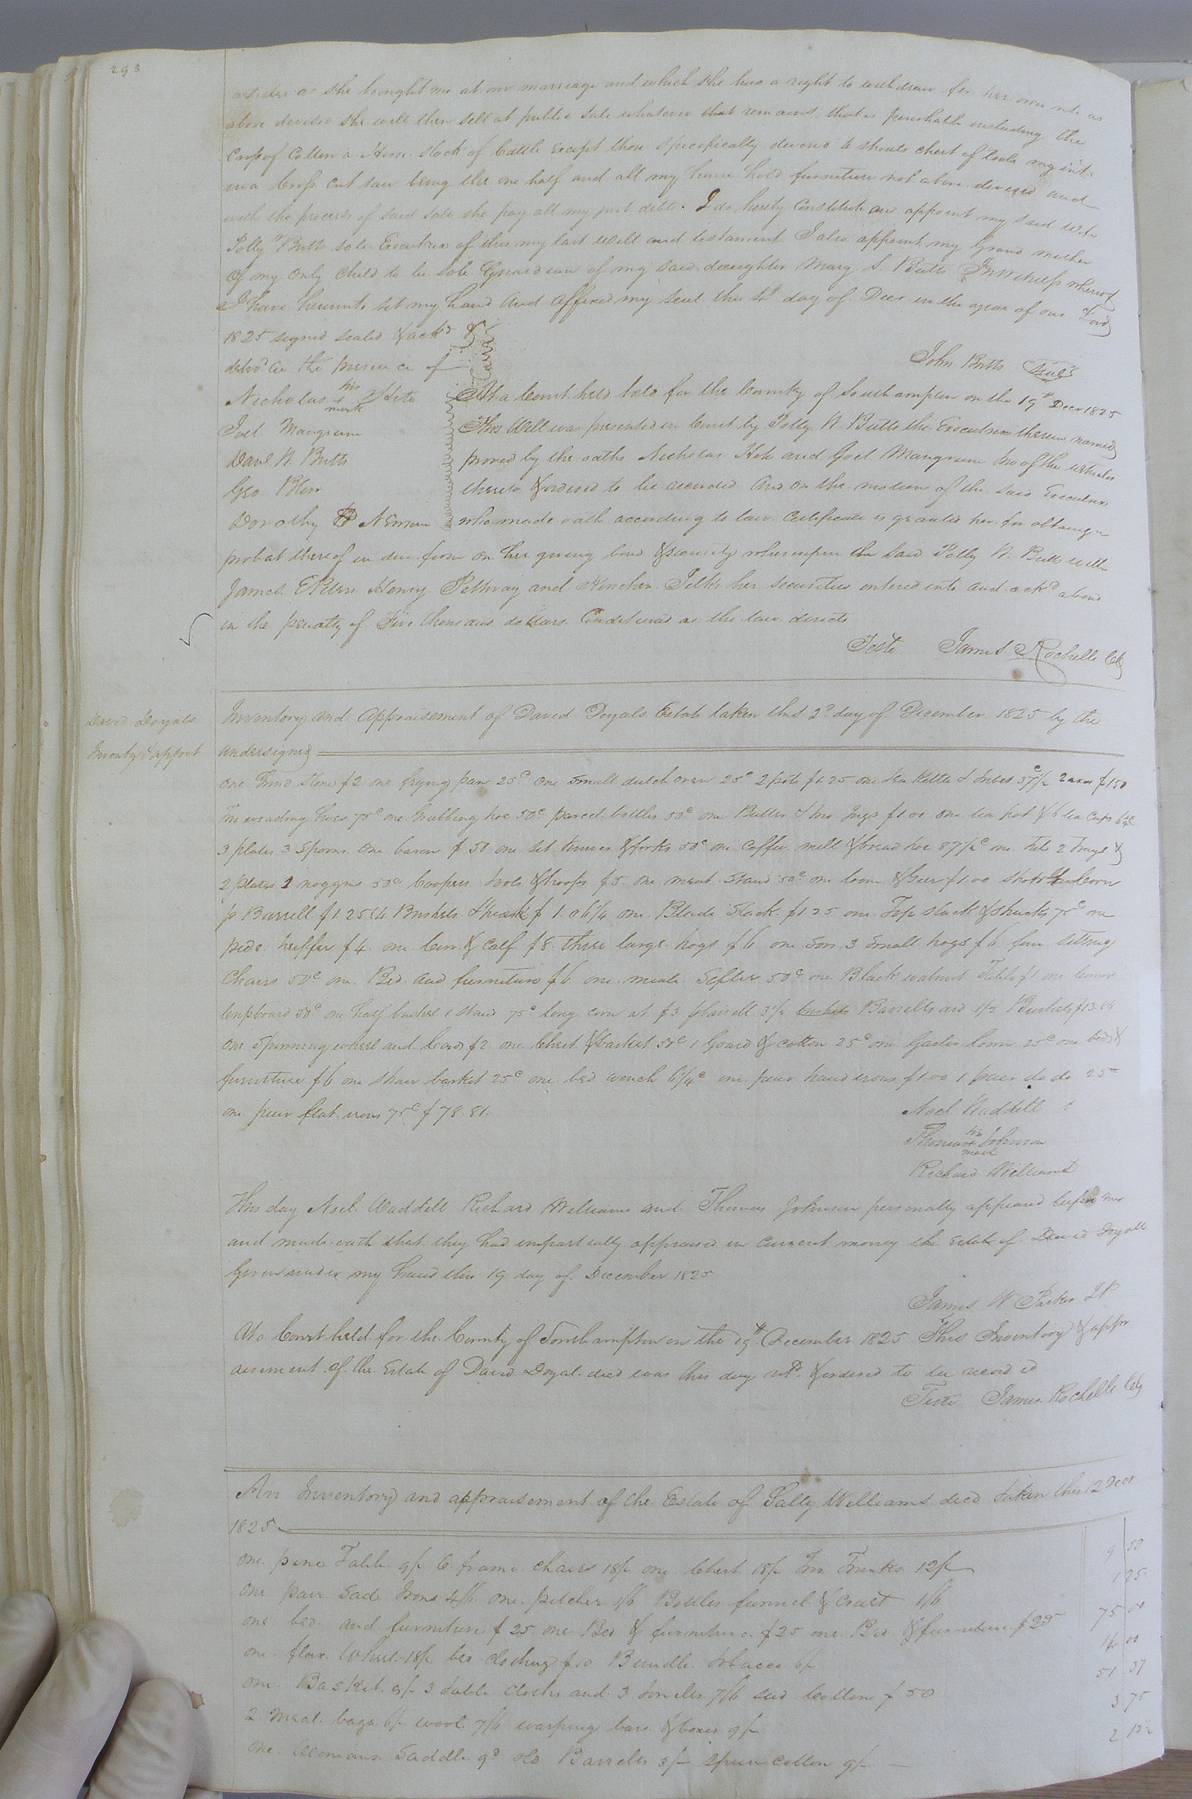 298
articles as she brought me at our marriage and which she has a right to withdraw for her own use as
above devised she will then sell at public sale whatever that remains, that is perishable including the
Crop of Cotton a Horse Stock of Cattle except those specifically devised & shoats chest of tools my int.
in a Cross cut saw being the one half and all my house hold furniture not above devised and
with the proceeds of said sale she pay all my just debts. I do hereby Constitute an appoint my said wife
Polly Butts sole Executrix of this my last Will and testament I also appoint my Grand mother
of my only child to be sole Guardian of my said daughter Mary S. Butts In Witness whereof
I have hereunto set my hand and affixed my seal this day of Decr in the year of our Lord
1825 signed sealed & ackd &
delivd in the presence of
John Butts Seal
Nicholas his mark Hite
Joel Mangrum
Danl N. Butts
Geo Bliss
Dorothy
At a Court held for the County of Southampton on the 19th Decr 1825
This Will was presented in Court by Polly N. Butts the Executrix therein named
proved by the oaths Nicholas Hite and Joel Mangrum two of the witnesses
thereto & ordered to be recorded And on the motion of the said Executrix
who made oath according to law Certificate is granted her for obtaining a
probat thereof in due form on her giving bond & security whereupon the said Polly N. Butts with
James Henry Pethway and her securities entered into and ackd a bond
in the penalty of Five thousand dollars Conditioned as the law directs
Teste James Rochelle Clk
David Doyals
Inventy & apprt
Inventory and Appraisement of David Doyals Estate taken this 2d day of December 1825 by the
undersigned
one Grind Stone $2 one frying pan 25c one small dutch oven 25c 2 pots $1.25 one Tea Kettle & 37½ 2 axes $1.50
Two weeding hoes 75c one Grubbing hoe 50c parcel bottles 50c one Butter & two Jugs $1.00 one tea pot & 6 tea Cups
3 plates 3 Spoons one bason $ 50 one set Knives & forks 50c one Coffee mill & bread hoe 87½c one 2 Trays &
2 plates 2 noggins 50c Coopers tools & troops $5 one meat stand 50c one loom & Gear $1.00 short Corn
pr Barrell $1.25 Bushels Wheat $1.06¼ one Blade Stack $1.25 one Top stack & shucks 75c one
pide heiffer $4 one Cow & Calf $8 three large hogs $6 one Sow 3 small hogs $6 four sitting
Chairs 50c one Bed and furniture $6 one meal Sifter 50c one Black walnut Table $1 one
Cupboard 50c one half bushel & stand 75c long corn at $3 3½ Barrells and ½ Bushels
one Spinning wheel and Cards $2 one Chest & basket 50c 1 Gourd & cotton 25c one 25c one bed &
furniture $6 one straw basket 25c one bed wench 6¼c one pair hand irons $1.00 1 pair do do 25
one pair flat irons 75c $78.81
Noel Waddell
Thomas his mark Johnson
Richard Williams
This day Noel Waddell Richard Williams and Thomas Johnson personally appeared before me
and made oath that they had impartially appraised in Current money the Estate of David Doyall
Given under my hand this 19 day of December 1825
James W Parker JP
At a Court held for the County of Southampton on the 19th December 1825 This Inventory & appr
aisement of the Estate of David Doyal decd was this day retd & ordered to be recorded
Teste James Rochelle Clk
An Inventory and appraisement of the Estate of Sally Williams decd taken this 12 Decr
1825
one pine Table 9/ 6 frame chairs 18/ one Chest 18/ Two Trunks 12/ 9 50
one pair Sad Irons 4/6 one pitcher 1/6 Bottles funnel & Cruet 1/6 1 25
one bed and furniture $25 one Bed & furniture $25 one Bed & furniture $25 75 00
one flax wheel 18/ bed clothing $10 Bundle tobacco 6/ 14 00
one Basket 3 table cloths and 3 Towells 7/6 seed cotton $50 51 37
2 meal bags 6/ wool 7/6 warping bars & boxes 9/ 3 75
one Womans Saddle 9d old Barrells 3/ Spun cotton 9/ 2